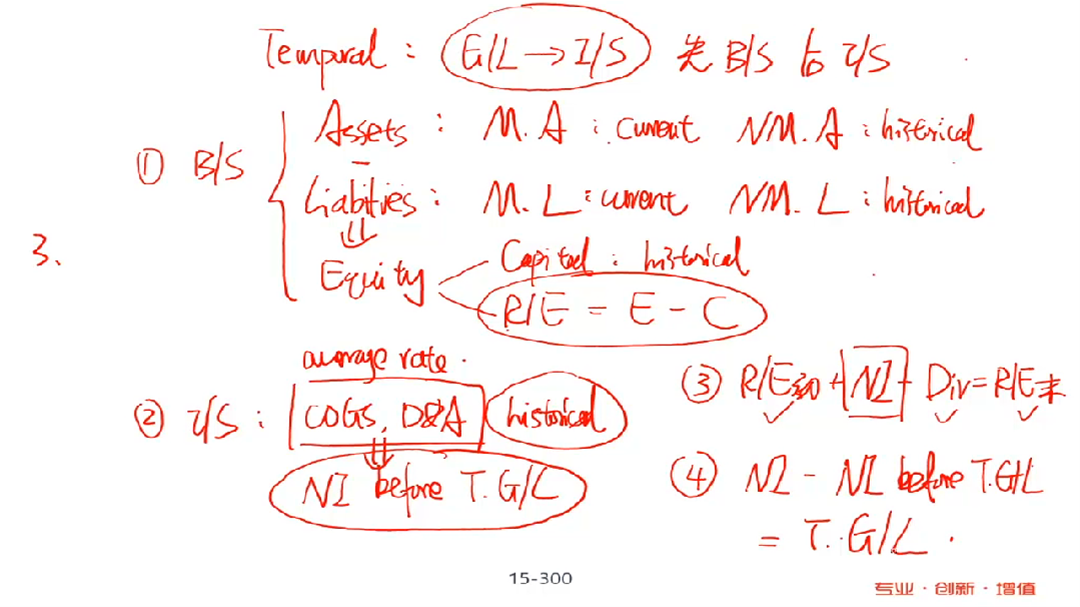 Temporal : G/L → I/S 先 B/S 后 I/S
3.
① B/S
Assets : M.A : current NM.A : historical
Liabilities : M.L : current NM.L : historical
⇓
Equity
Capital : historical
R/E = E - C
② I/S :
average rate.
COGS, D&A historical
⇓
NI before T.G/L
③ R/E初 + NI - Div = R/E末
④ NI - NI before T.G/L
= T.G/L .
15-300
专业·创新·增值